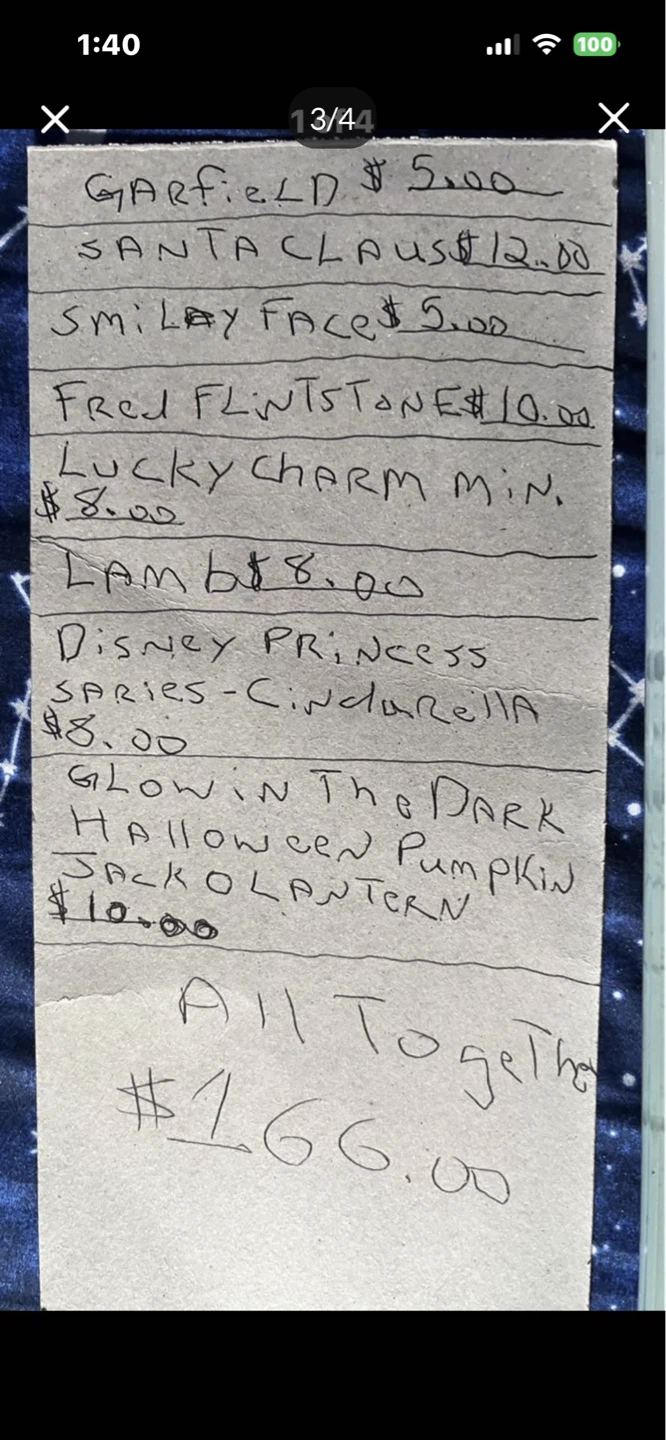 1:40
100
3/4
GARfieLD $ 5.00
SANTA CLAUS $12.00
SmiLEY FACe $ 5.00
FRed FLiNTSTONE $10.00
LUCKY ChARM MiN.
$8.00
LAMb $8.00
DiSNEY PRiNcess
SARies - CiNdaRellA
$8.00
GLOW iN The DARK
HAlloween PumpKiN
JAcK O LANTERN
$10.00
All TogeTher
$166.00